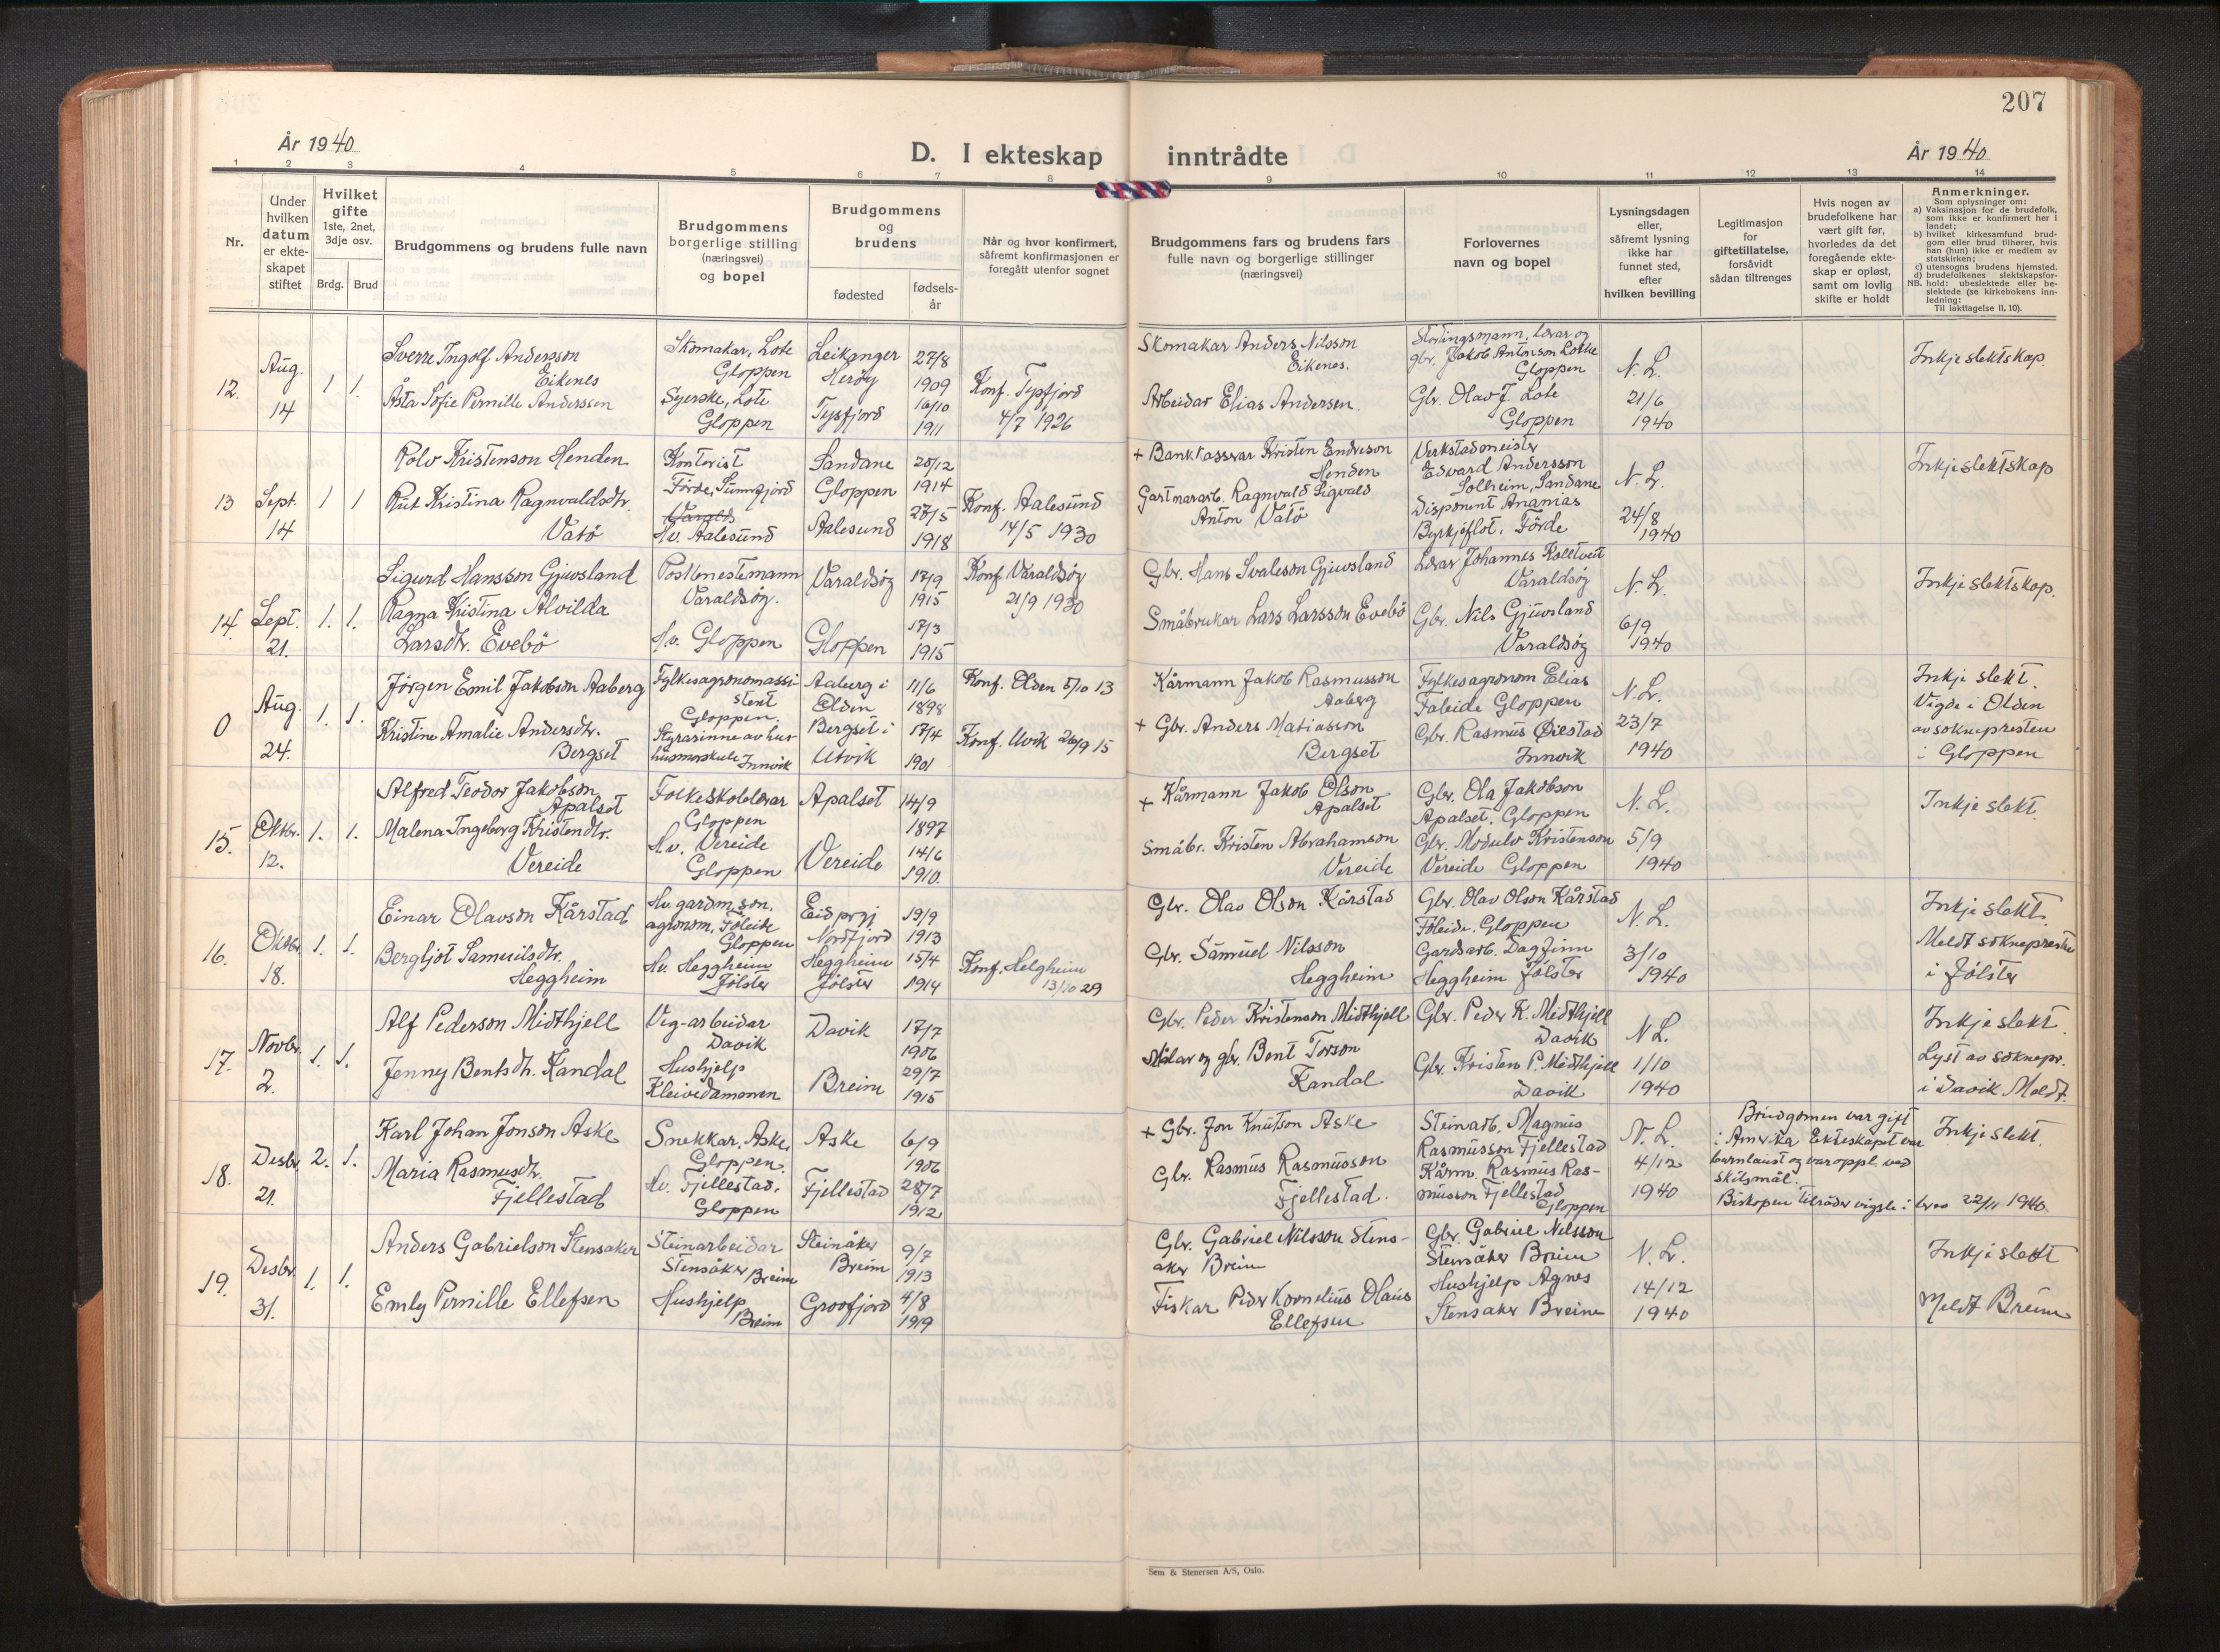 207
År 1940
D. I ekteskap inntrådte
År 1940
1 2 3 4 5 6 7 8 9 10 11 12 13 14
Nr.
Under
hvilken
datum
er ekte-
skapet
stiftet
Hvilket
gifte
1ste, 2net,
3dje osv.
Brdg. Brud
Brudgommens og brudens fulle navn
Brudgommens
borgerlige stilling
(næringsvei)
og bopel
Brudgommens
og
brudens
fødested
fødsels-
år
Når og hvor konfirmert,
såfremt konfirmasjonen er
foregått utenfor sognet
Brudgommens fars og brudens fars
fulle navn og borgerlige stillinger
(næringsvei)
Forlovernes
navn og bopel
Lysningsdagen
eller,
såfremt lysning
ikke har
funnet sted,
efter
hvilken bevilling
Legitimasjon
for
giftetillatelse,
forsåvidt
sådan tiltrenges
Hvis nogen av
brudefolkene har
vært gift før,
hvorledes da det
foregående ekte-
skap er opløst,
samt om lovlig
skifte er holdt
Anmerkninger.
Som oplysninger om:
a) Vaksinasjon for de brudefolk,
som ikke er konfirmert her i
landet;
b) hvilket kirkesamfund brud-
gom eller brud tilhører, hvis
han (hun) ikke er medlem av
statskirken;
c) utensogns brudens hjemsted.
d) brudefolkenes slektskapsfor-
NB. hold: ubeslektede eller be-
slektede (se kirkebokens inn-
ledning:
Til iakttagelse II, 10).
12.
Aug.
14
1 1.
Sverre Ingolf Andersson
Eikenes
Åsta Sofie Pernille Anderssen
Skomakar, Lote
Gloppen
Syerske, Lote
Gloppen
Leikanger
Herøy
Tysfjord
27/8
1909
16/10
1911
Konf. Tysfjord
4/7 1926
Skomakar Anders Nilsson
Eikenes.
Arbeidar Elias Andersen.
Stortingsmann, lærar og
gbr. Jakob Antonson Lothe
Gloppen
Gbr. Olav J. Lote
Gloppen
N. L.
21/6
1940
Inkje slektskap.
13
Sept.
14
1 1
Rolv Kristenson Henden
Rut Kristina Ragnvaldsdtr.
Vatö
Kontorist
Förde, Sunnfjord
Hv. Aalesund
Sandane
Gloppen
Aalesund
20/12
1914
27/5
1918
Konf. Aalesund
14/5 1930
+ Bankkasserar Kristen Endreson
Henden
Gartnararb. Ragnvald Sigvald
Anton Vatö
Verkstadmeister
Edvard Andersson
Solheim, Sandane
Disponent Ananias
Byrkjeflot, Förde
N. L.
24/8
1940
Inkje slektskap
14.
Sept.
21.
1. 1.
Sigurd Hansson Gjuvsland
Ragna Kristina Alvilda
Larsdtr. Evebö
Posttenestemann
Varaldsöy.
Hv. Gloppen
Varaldsöy
Gloppen
17/9
1915
17/3
1915
Konf. Varaldsöy
21/9 1930
Gbr. Hans Svaleson Gjuvsland
Småbrukar Lars Larsson Evebö
Lærar Johannes Kolltveit
Varaldsöy
Gbr. Nils Gjuvsland
Varaldsöy
N. L.
6/9
1940
Inkje slektskap.
0
Aug.
24.
1. 1.
Jörgen Emil Jakobson Aaberg
Kristine Amalie Andersdtr.
Bergset
Fylkesagronomassi-
stent
Gloppen.
Styrarinne av hus-
husmorskule Innvik
Aaberg i
Olden
Bergset i
Utvik
11/6
1898
17/4
1901
Konf. Olden 5/10 13
Konf. Utvik 26/9 15
Kårmann Jakob Rasmusson
Aaberg
+ Gbr. Anders Matiasson
Bergset
Fylkesagronom Elias
Faleide Gloppen
Gbr. Rasmus
Innvik
N. L.
23/7
1940
Inkje slekt.
Vigde i Olden
av soknepresten
i Gloppen
15.
Oktbr.
12.
1. 1.
Alfred Teodor Jakobson
Apalset
Malena Ingeborg Kristendtr.
Vereide
Folkeskolelærar
Gloppen
Hv. Vereide
Gloppen
Apalset
Vereide
14/9
1897
14/6
1910.
+ Kårmann Jakob Olson
Apalset
Småbr. Kristen Abrahamson
Vereide
Gbr. Ola Jakobson
Apalset. Gloppen
Gbr. Modulv Kristenson
Vereide Gloppen
N. L.
5/9
1940
Inkje slekt.
16.
Oktbr.
18.
1. 1.
Einar Olavson Kårstad
Bergljot Samuelsdtr.
Heggheim
Hv. gardm.son,
agronom, Föleide
Gloppen
Hv. Heggheim
Jølster
Eid prgj
Nordfjord
Heggheim
Jølster
19/9
1913
15/4
1914
Konf. Helgheim
13/10 29
Gbr. Olav Olson Kårstad
Gbr. Samuel Nilsson
Heggheim
Gbr. Olav Olson Kårstad
Föleide, Gloppen
Gardsarb. Dagfinn
Heggheim Jølster
N. L.
3/10
1940
Inkje slekt.
Meldt soknepresten
i Jølster
17.
Novbr.
2.
1. 1.
Alf Pederson Midthjell
Jenny Bentsdtr. Kandal
Veg-arbeidar
Davik
Hushjelp
Kleivedammen
Davik
Breim
17/7
1906
29/7
1915
Gbr. Peder Kristenson Midthjell
Målar og gbr. Bent Torson
Kandal
Gbr. Peder K. Midthjell
Davik
Gbr. Kristen P. Midthjell
Davik
N L.
1/10
1940
Inkje slekt.
Lyst av soknepr.
i Davik Meldt.
18.
Desbr.
21.
2. 1.
Karl Johan Jonson Aske
Maria Rasmusdtr.
Fjellestad
Snekkar, Aske,
Gloppen.
Hv. Fjellestad,
Gloppen
Aske
Fjellestad
6/9
1906
28/7
1912
+ Gbr. Jon Knutson Aske
Gbr. Rasmus Rasmusson
Fjellestad.
Steinarb. Magnus
Rasmusson Fjellestad
Kårm. Rasmus Ras-
musson Fjellestad
Gloppen
N. L.
4/12
1940
Brudgomen var gift
i Amerika Ekteskapet var
barnlaust og var oppl. ved
skilsmål.
Biskopen tilråder vigsle i brev 22/11 1940
Inkje slekt.
19.
Desbr.
31.
1. 1.
Anders Gabrielson Stensaker
Emly Pernille Ellefsen
Steinarbeidar
Stensåker Breim
Hushjelp
Breim
Steinåker
Breim
Grovfjord
9/7
1913
4/8
1919
Gbr. Gabriel Nilsson Stens-
aker Breim
Fiskar Peder Kornelius Olaus
Ellefsen
Gbr. Gabriel Nilsson
Stensåker Breim
Hushjelp Agnes
Stensaker Breim
N. L.
14/12
1940
Inkje slekt
Meldt Breim
Sem & Stenersen A/S, Oslo.